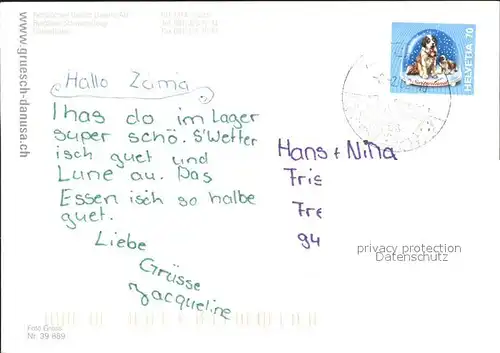 www.gruesch-danusa.ch
HELVETIA 70
Hallo Zämä
I has do im Lager
super schö. S'Wetter
isch guet und
Lune au. Das
Essen isch so halbe
guet.
Liebe
Grüsse
Jacqueline
Hans + Nina
Fris
Fre
94
privacy protection
Datenschutz
Foto Gross
Nr. 39 889